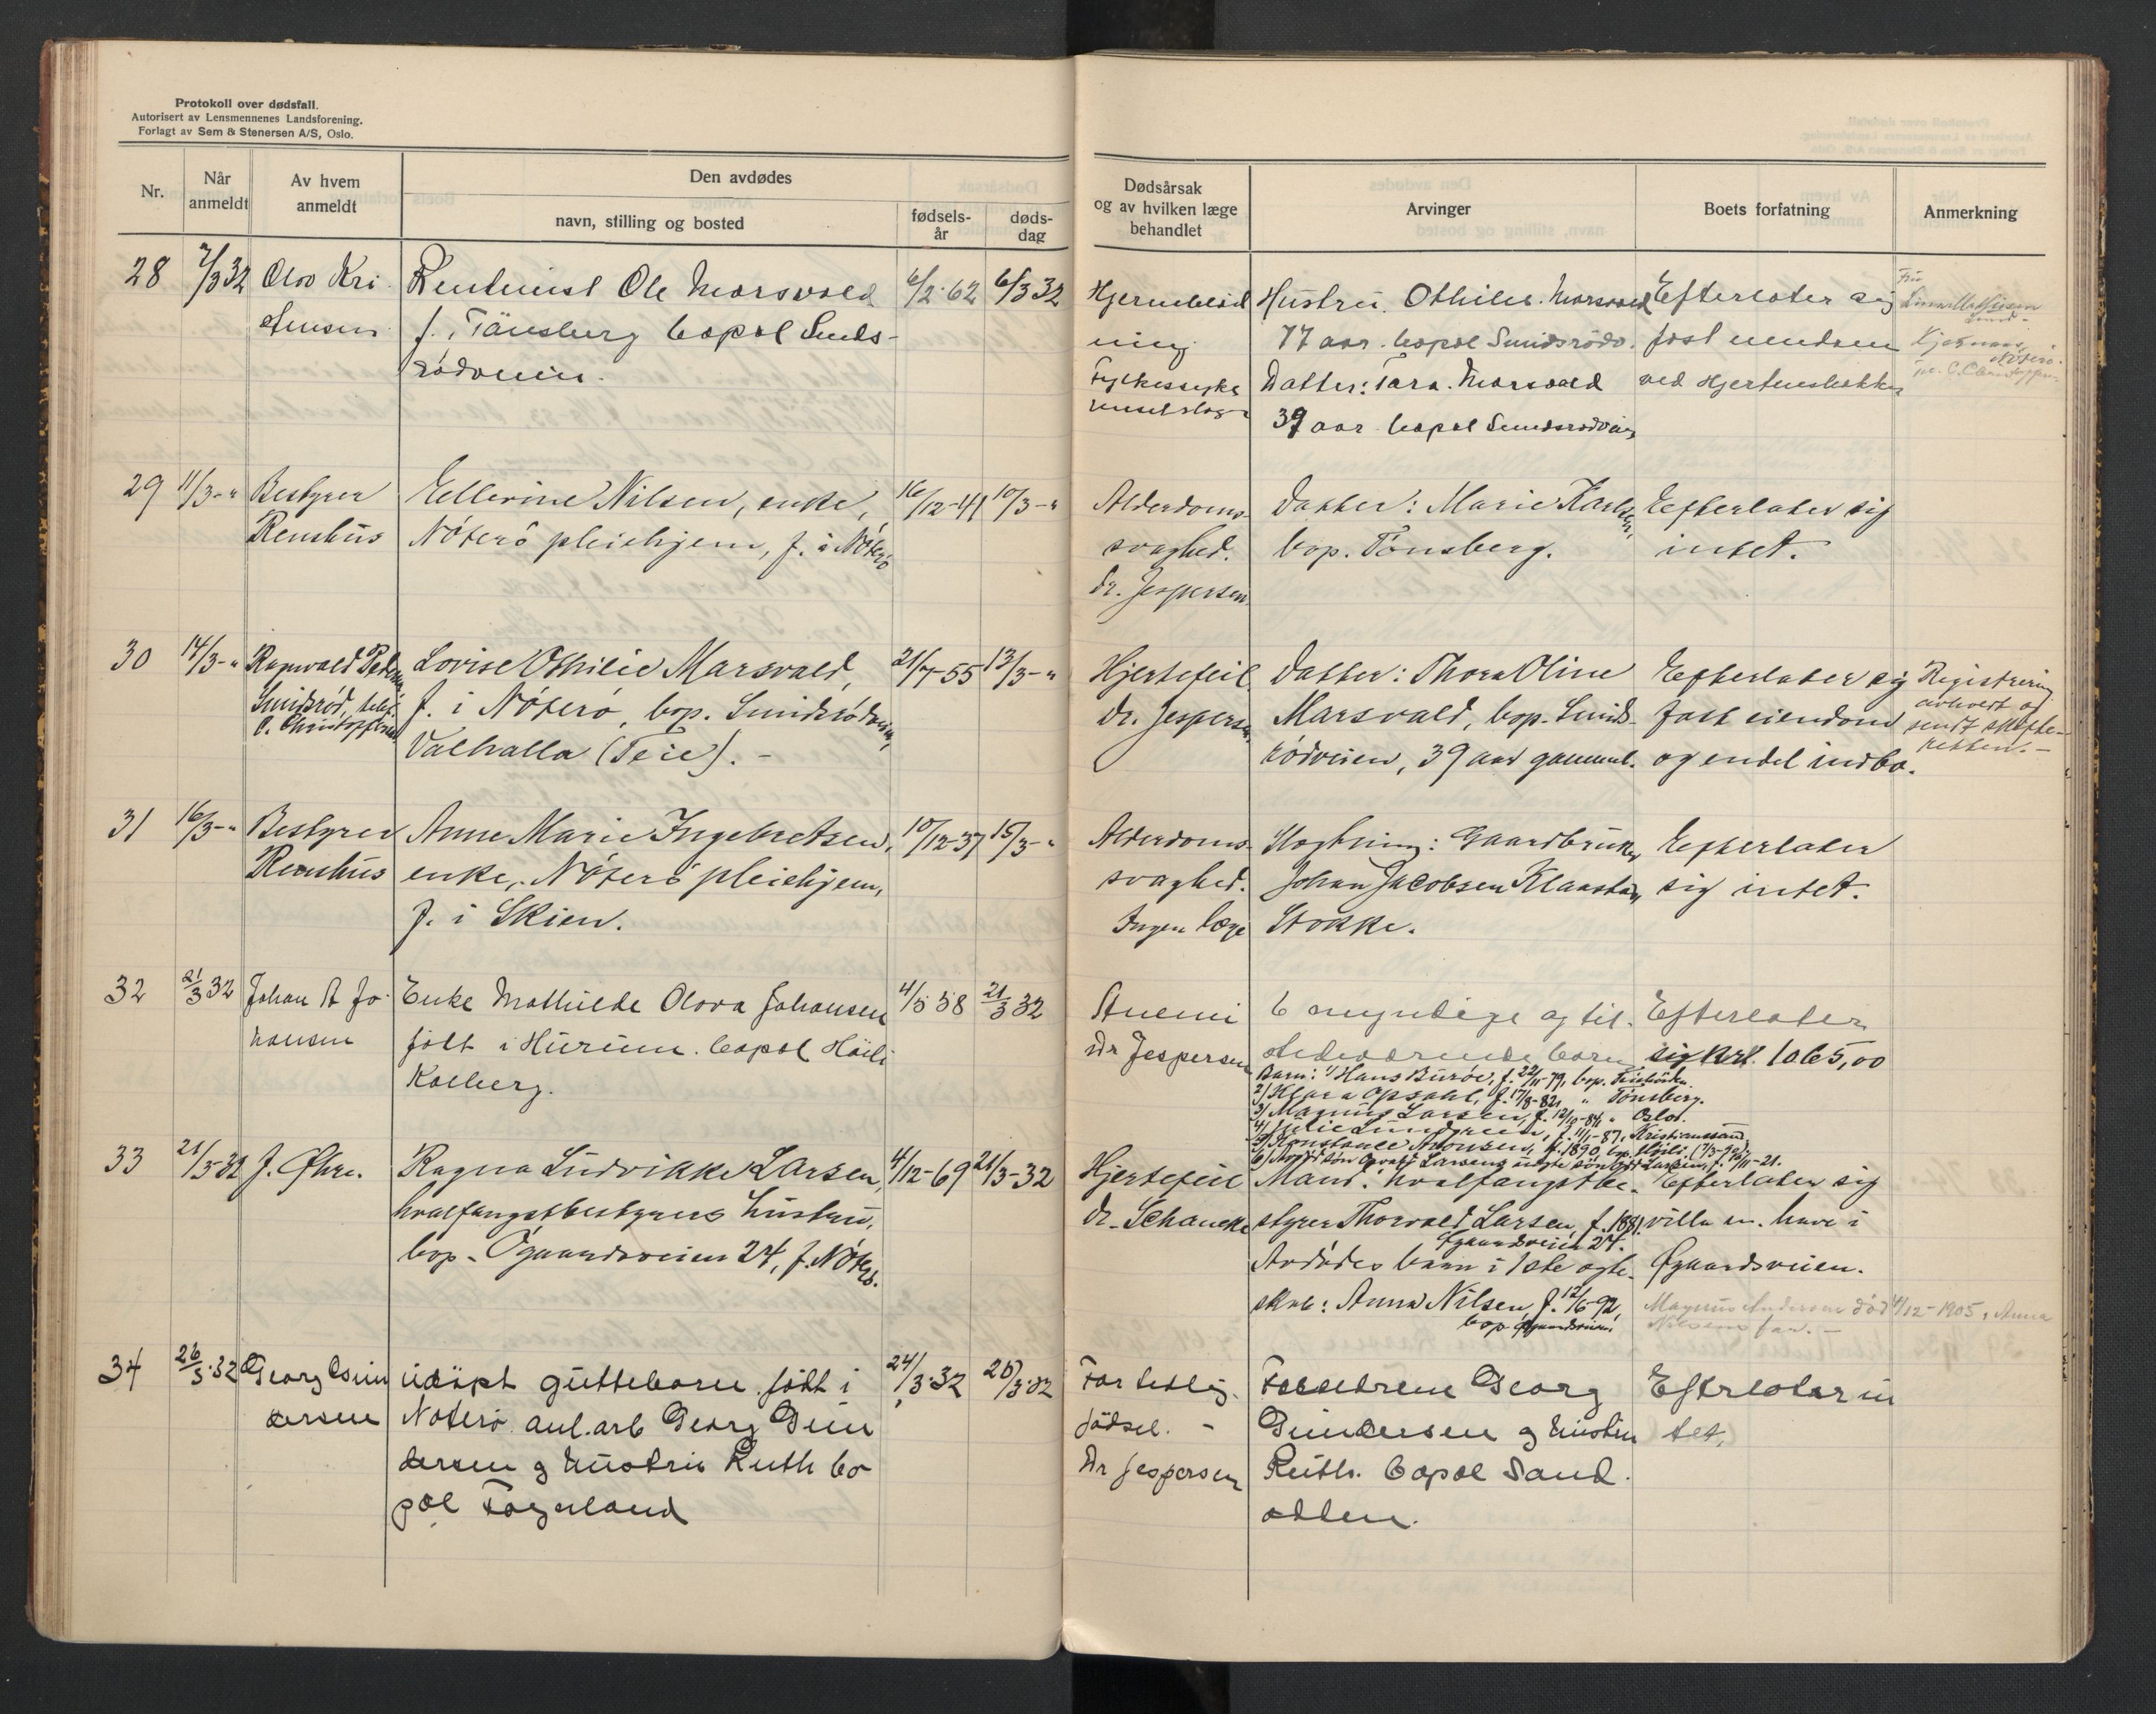 Protokoll over dødsfall.
Autorisert av Lensmennenes Landsforening.
Forlagt av Sem & Stenersen A/S, Oslo.
Nr.
Når anmeldt
Av hvem anmeldt
Den avdødes
navn, stilling og bosted
fødsels-år
døds-dag
Dødsårsak og av hvilken læge behandlet
Arvinger
Boets forfatning
Anmerkning
28 7/3 32 Olav Kri
stensen
Rentenist Ole Marsvald
f. i Tånsberg bopæl Smids-
rødveien.
6/2-62 6/3 32
Hjerneblød
ning
Fylkessyke
Hustru. Othilie. Marsvald
77 aar. bopæl Smidsrødv.
Datter: Tara. Marsvald
39 aar bopæl Smidsrødvei
Efterlater sig
fast eiendom
ved Hjertnesbakken
29 11/3-" Bestyrer
Renshus
Ellerine Nilsen, enke,
Nøterø pleiehjem, f. i Nøterø
16/12-41 10/3-"
Alderdoms-
svaghed.
dr. Jespersen
Datter: Marie Karlsen,
bop. Tønsberg.
Efterlater sig
intet.
30 14/3-" Ragnvald Peder
Smidsrød, telef.
C. Christoffersen
Lovise Othilie Marsvald,
f. i Nøterø, bop. Smidsrødveien,
Valhalla (Teie). -
21/7-55 13/3-"
Hjertefeil
dr. Jespersen
Datter: Thora Oline
Marsvald, bop. Smids-
rødveien, 39 aar gammel.
Efterlater sig
fast eiendom
og endel indbo.
Registrering
avhvert og
sendt skifte-
retten. -
31 16/3-" Bestyrer
Renshus
Anne Marie Ingebretsen,
enke, Nøterø pleiehjem,
f. i Skien.
10/12-37 15/3-"
Alderdoms-
svaghed.
Ingen læge
Slegtning: Gaardbruker
Johan Jacobsen Klaastad,
Stokke.
Efterlater
sig intet.
32 21/3 32 Johan A Jo-
hansen
Enke Mathilde Olava Johansen
født i Hurum. bopæl Høili
Kolberg.
4/5 58 21/3 32
Anemi
Dr Jespersen
6 myndige og til-
stedeværende barn
Barn: 1/ Hans Burøe, f. 22/11-79, bop.
2/ Klara Opsahl, f. 17/8-82, " Tønsberg.
3/ Magnus Larsen, f. 12/10-84, " Oslo.
4/ Julie Lundgreen, f. 11/1-87, Kristianssand,
5/ Konstance Antonsen, f. 1890, bop. Høili, (7/3-90)
Efterlater
sig Kr. 1065,00
33 21/3-32 J. Øhre.
Ragna Ludvikke Larsen,
hvalfangstbestyrers hustru,
bop. Øgaardsveien 24, f. Nøterø.
4/12-69 21/3-32
Hjertefeil
dr. Schancke
Mand: hvalfangstbe-
styrer Thorvald Larsen, f. 1881
Øgaardsveien 24.
Avdødes barn i 1ste ægte-
skab: Anna Nilsen, f. 12/6-92,
bop Øgaardsveien
Efterlater sig
villa m. have i
Øgaardsveien.
Magnus Andersen død 4/12-1905, Anna
Nilsens far. -
34 26/3-32 Georg Gun
dersen
udøpt guttebarn født i
Nøterø anl. arb Georg Gun
dersen og hustru Ruth bo
pæl Fagerland
24/3-32 26/3-32
For tidlig
fødsel. -
Dr Jespersen
Forældrene Georg
Gundersen og hustru
Ruth. bopæl Sand
Efterlater in
tet,